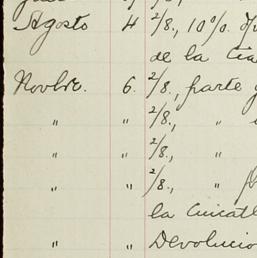 Agosto 4 2/8., 10%.
de la Cía
Novbre. 6. 2/8., parte
" " 2/8., "
" " 2/8., "
" " 2/8., "
la Cuicatl
" " Devolucio